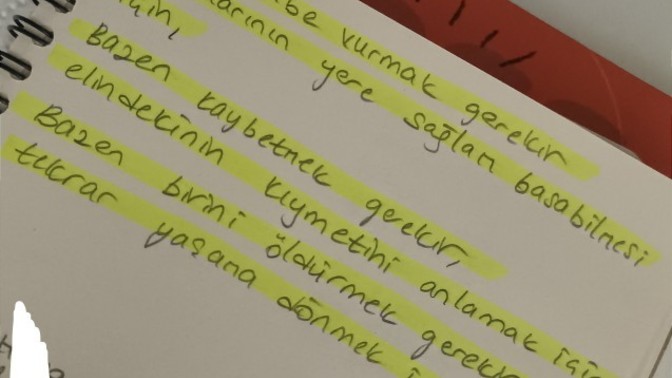 vurmak gerekir
yere sağlam basabilmesi
için,
Bazen kaybetmek gerekir,
elindekinin kıymetini anlamak için
Bazen birini öldürmek
tekrar yaşama dönmek